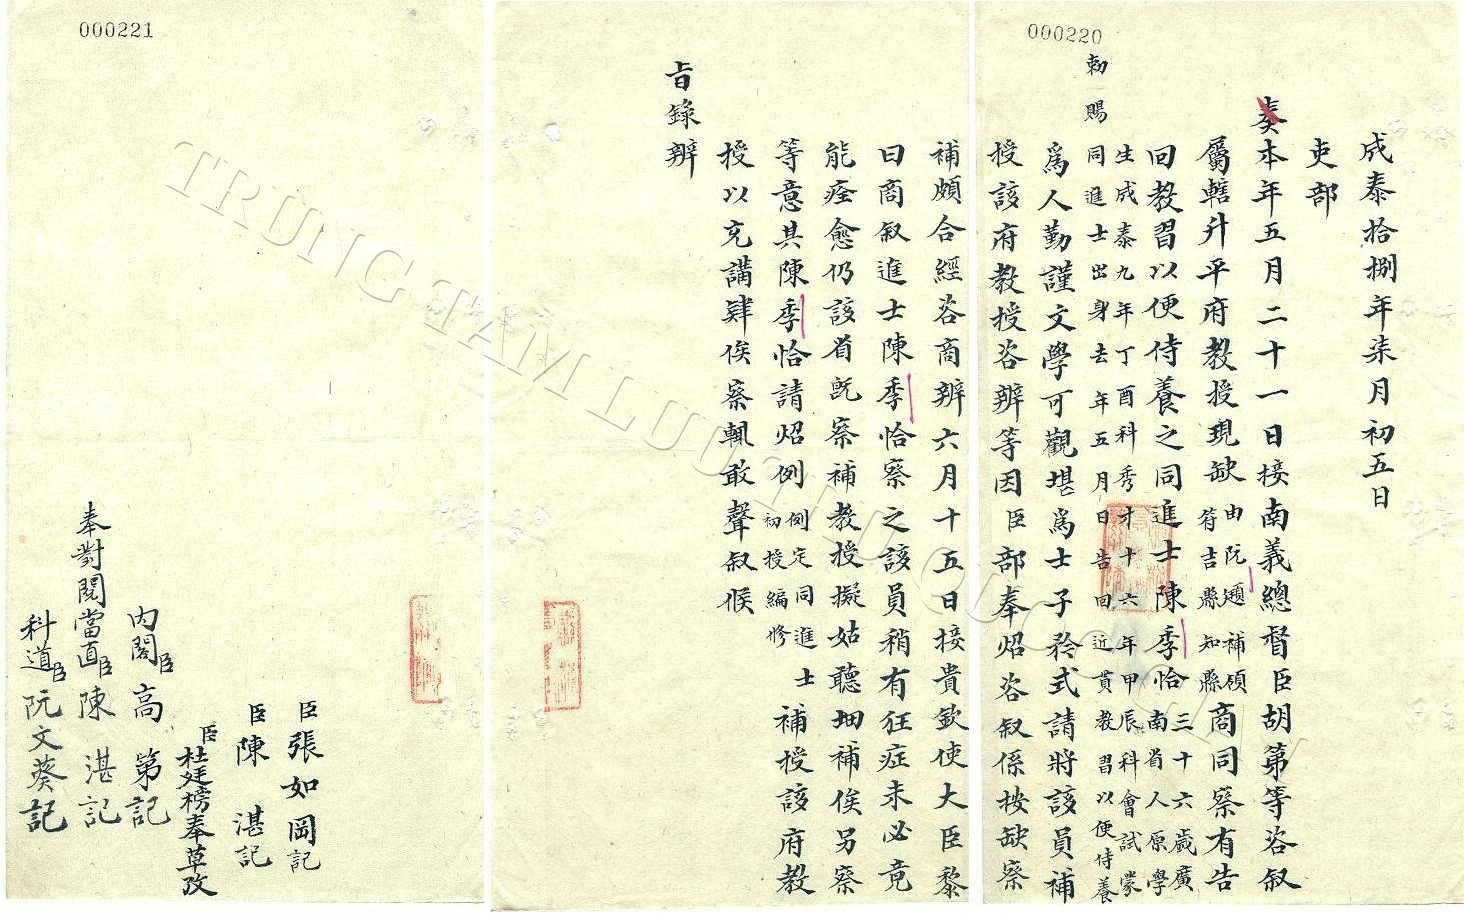 000220
成泰拾捌年柒月初五日
吏部
奏本年五月二十一日接南義總督臣胡第等咨叙
屬轄升平府教授現缺由阮𨒺補領符吉縣知縣商同察有告
回教習以便侍養之同進士陳季恰三十六歲廣南省人原學
生成泰九年丁酉科秀才十六年甲辰科會試蒙
勅賜同進士出身去年五月日告回近貫教習以便侍養
爲人勤謹文學可觀堪爲士子矜式請將該員補
授該府教授咨辨等因臣部奉炤咨叙係按缺察
補頗合經咨商辨六月十五日接貴欽使大臣黎
曰商叙進士陳季恰察之該員稍有狂症未必竟
能痊愈仍該省旣察補教授擬姑聽𬏑補俟另察
等意其陳季恰請炤例例定同進士初授編修補授該府教
授以充講肄俟察輒敢聲叙候
旨錄辨
000221
臣張如岡記
臣陳湛記
臣杜廷榜奉草攷
内閣臣高第記
奉對閱當直臣陳湛記
科道臣阮文葵記
TRUNG TAM LUU TRU QUOC GIA